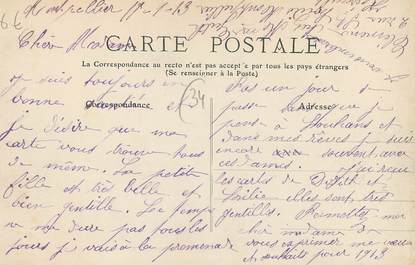 Montpellier 8-1-13
Chère Madame
CARTE POSTALE
La Correspondance au recto n'est pas acceptée par tous les pays étrangers
(Se renseigner à la Poste)
Correspondance
Adresse
34
je suis toujours en
bonne et
je désire que ma
carte vous trouve tous
de même. La petite
fille est très belle et
bien gentille. Le temps
ne me dure pas tous les
jours je vais à la promenade
Pas un jour se
passe que je
pense à Louhans et
dans mes rêves je suis
encore souvent avec
ces dames. J'ai reçu
les cartes de et
elles sont très
gentilles. Permettez moi
chère madame de
vous exprimer mes vœux
et souhaits pour 1913